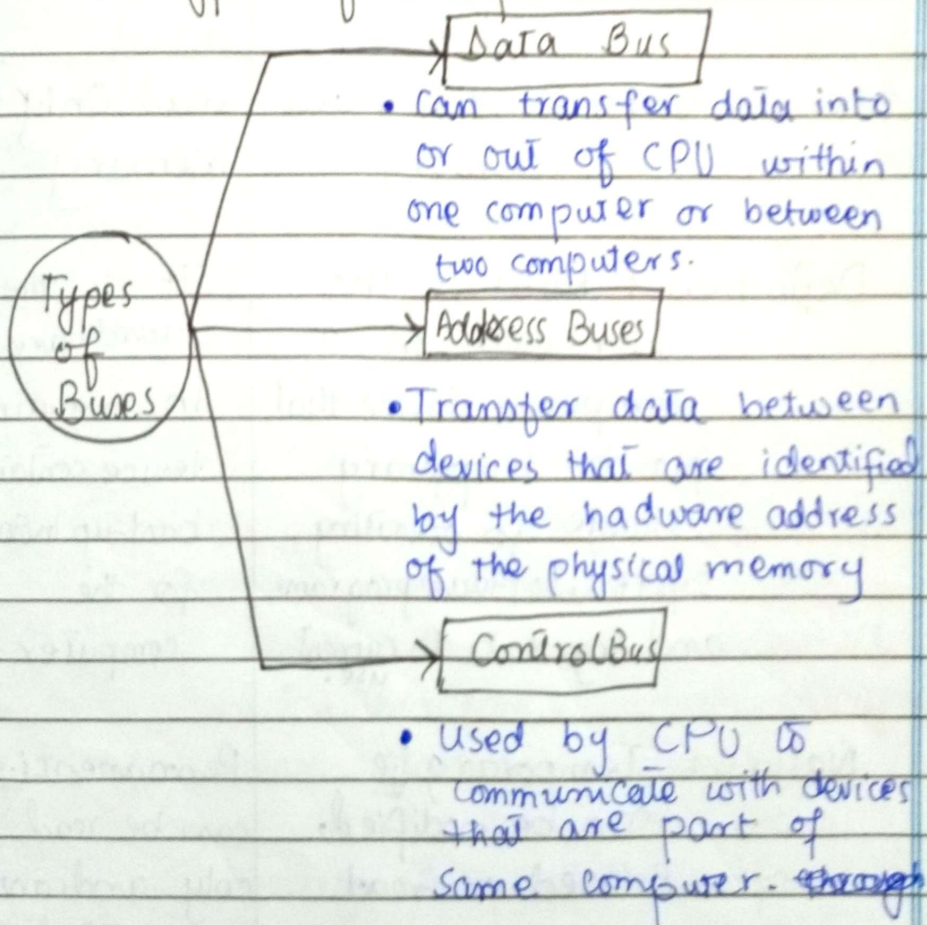 Data Bus
• Can transfer data into
or out of CPU within
one computer or between
two computers.
Types
of
Buses
Address Buses
• Transfer data between
devices that are identified
by the hadware address
of the physical memory
Control Bus
• Used by CPU to
communicate with devices
that are part of
same computer.